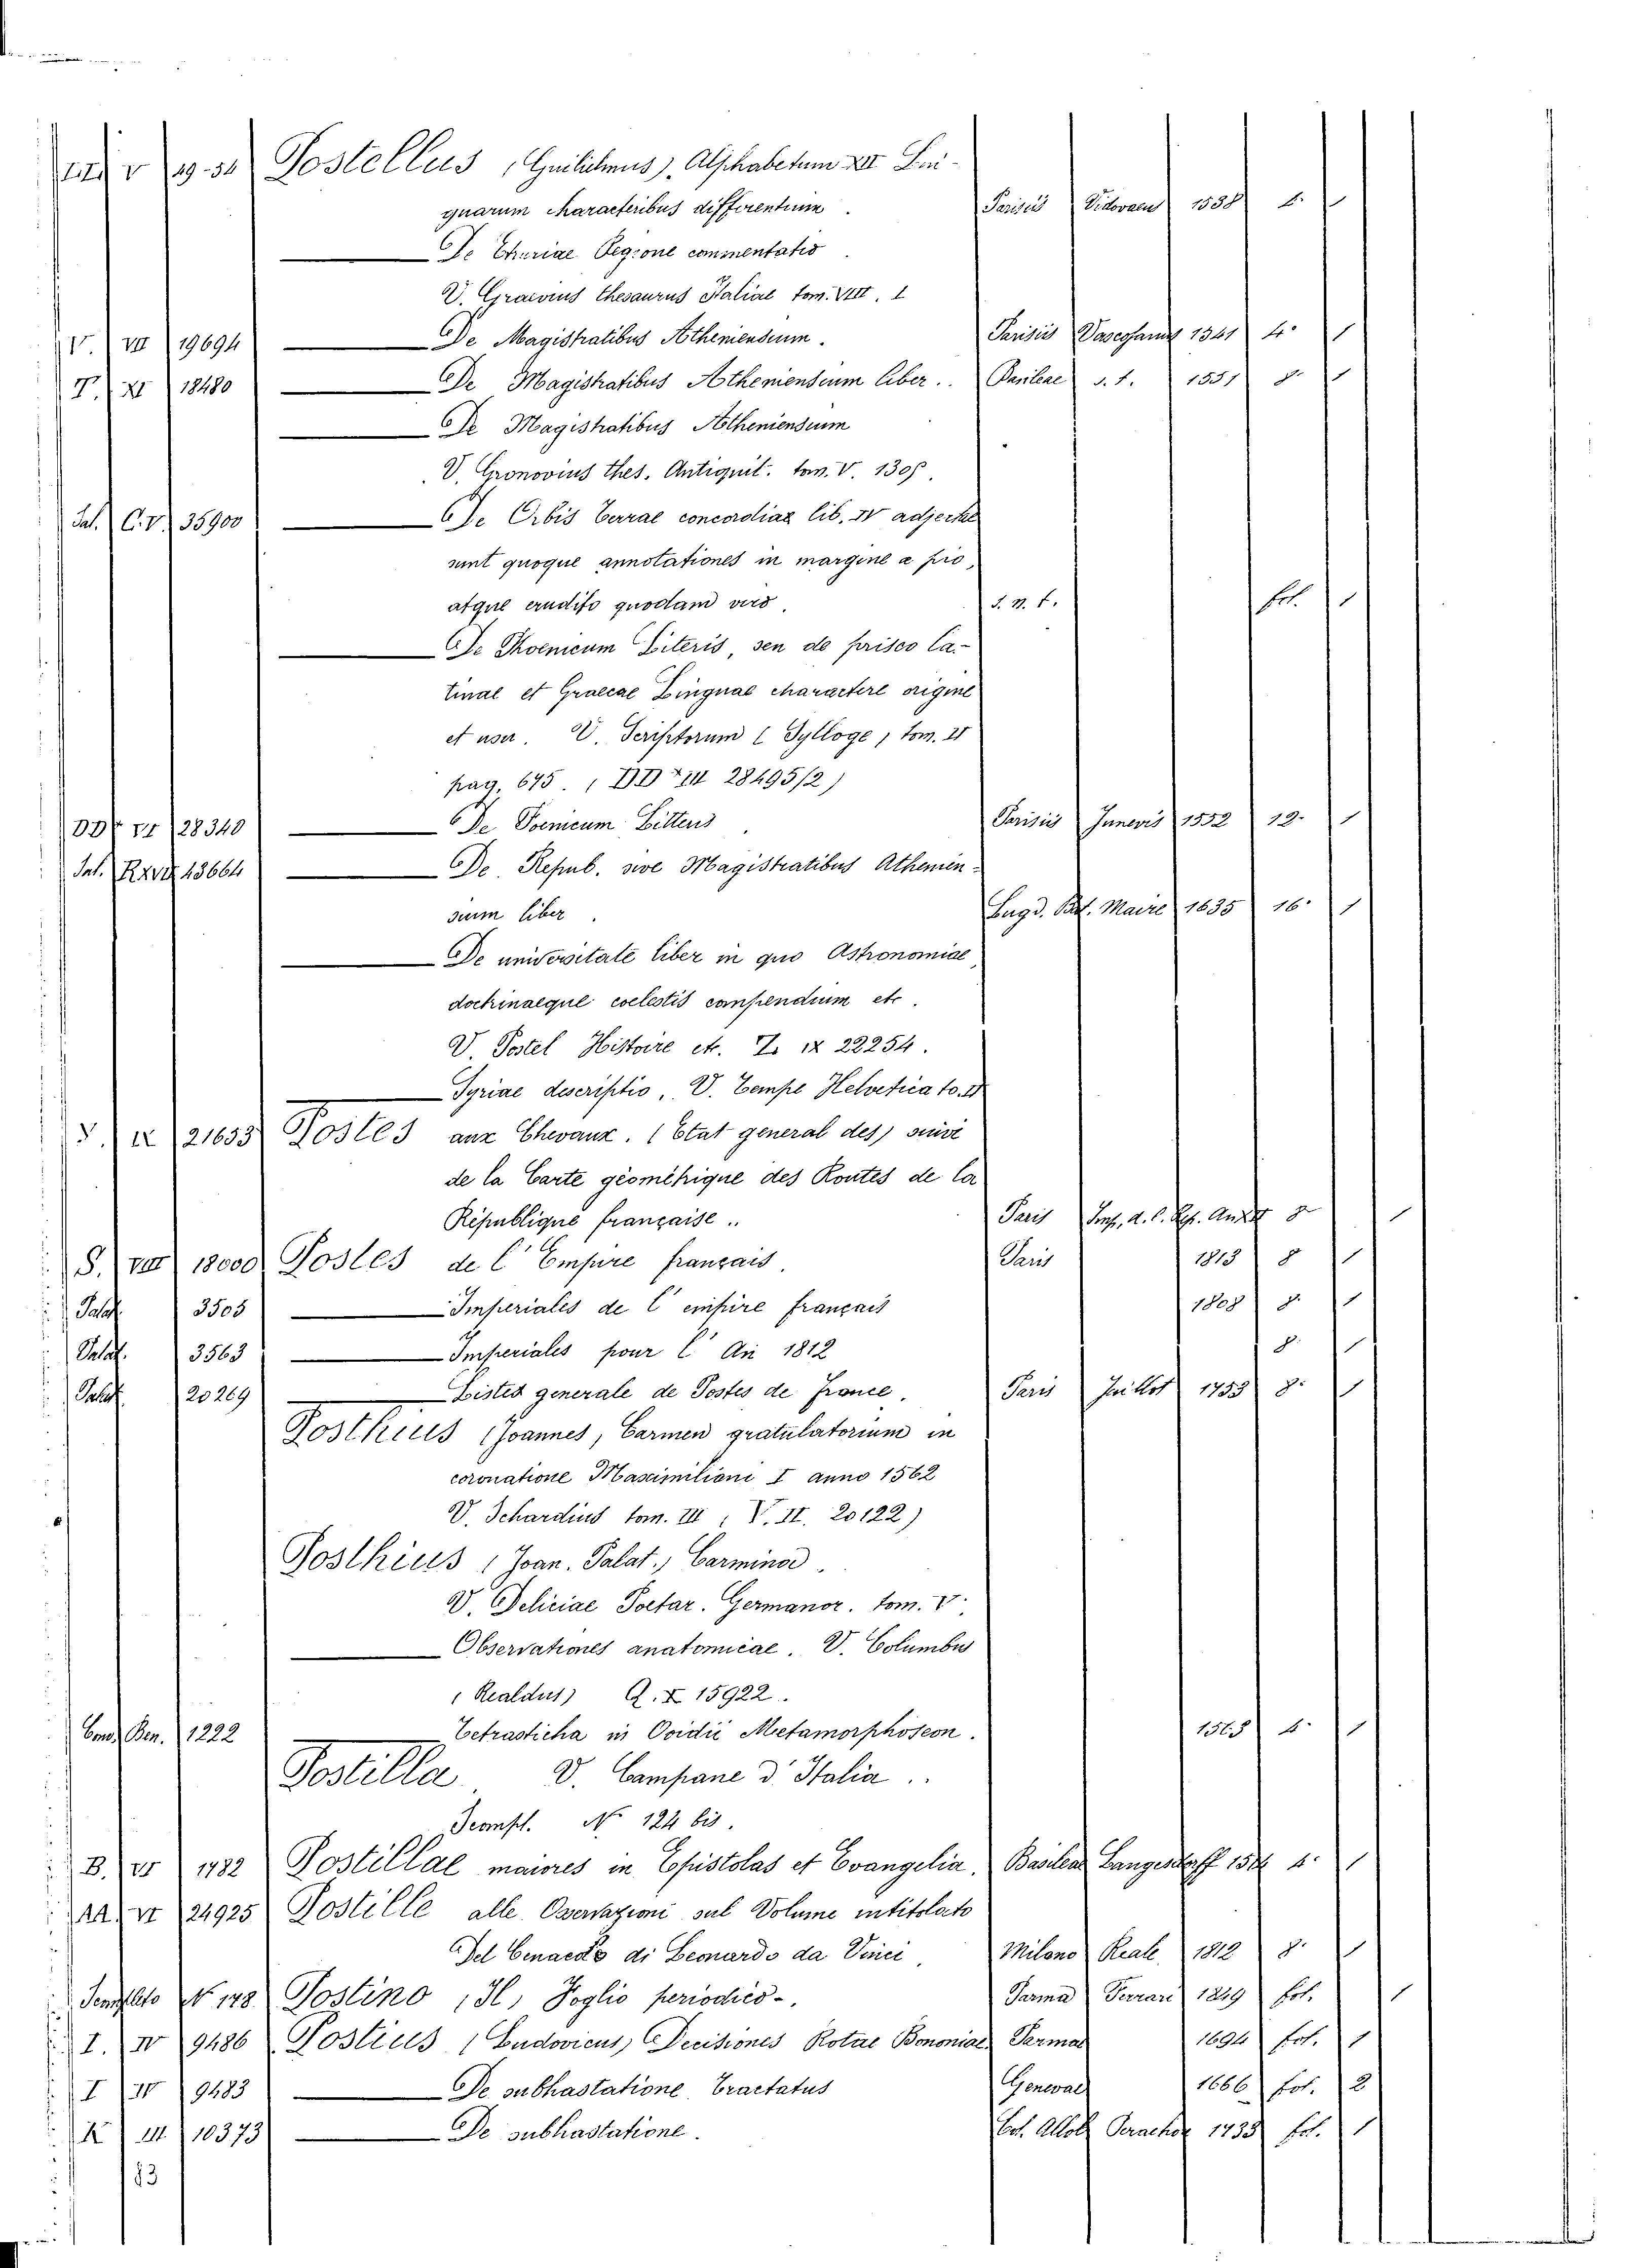 V 19.51 Postellus (Guilielmus), Alphabetum XII Lin-
quarum characteribus differentium. Parisiis Vidovaeus 1538 4.
De Ethuriae Regione commentatio.
V. Graevius Thesaurus Italiae tom. VIII. 1
V. VII 19694 De Magistratibus Atheniensium. Parisiis Vascosanus 1541 4. 1
T. XI 18480 De Magistratibus Atheniensium liber.. Basileae s. t. 1551 8. 1
De Magistratibus Atheniensium
V. Gronovius thes. Antiquit. tom. V. 1309.
Pal. C.V. 35900 De Orbis Terrae concordiae lib. IV adjectae
sunt quoque annotationes in margine a pio,
atque erudito quodam viro. s. n. t. fol. 1
De Phoenicum Literis, seu de prisco La-
tinae et Graecae Linguae charactere origine
et usu. V. Scriptorum (Sylloge) tom. II
pag. 675. (DD XIII 28495/2)
DD VI 28340 De Poenicum Litteris Parisiis Juneris 1552 12. 1
Pal. RXVII 43664 De Repub. sive Magistratibus Athenien-
sium liber. Lugd. Bat. Maire 1635 16. 1
De universitate liber in quo Astronomiae,
doctrinaeque coelestis compendium etc.
V. Postel Histoire etc. Z. IX 22254.
Syriae descriptio, V. Tempe Helvetica to. II
S. IX 21655 Postes aux Chevaux. (Etat general des) suivi
de la Carte géométrique des Routes de la
République française.. Paris Imp. d. l. Rep. An XII 8 1
S. VIII 18000 Postes de l'Empire français. Paris 1813 8 1
Palat. 3505 Imperiales de l'empire français 1808 8. 1
Palat. 3563 Imperiales pour l'An 1812 8. 1
Palat. 20269 Listes generale de Postes de France. Paris Jaillot 1753 8. 1
Posthius (Joannes, Carmen gratulatorium in
coronatione Maximiliani I anno 1562
V. Schardius tom. III (V. II. 20122)
Posthius (Joan. Palat.) Carmina.
V. Deliciae Poetar. Germanor. tom. V.
Observationes anatomicae. V. Columbus
(Realdus) Q. X 15922.
Cons. Ben. 1222 Tetrasticha in Ovidii Metamorphoseon. 1565 4. 1
Postilla V. Campane d'Italia..
Scompl. N° 124 bis.
B. VI 1782 Postillae maiores in Epistolas et Evangelia. Basileae Langendorff 4. 1
AA. VI 24925 Postille alle Osservazioni sul Volume intitolato
Del Cenacolo di Leonardo da Vinci. Milano Reale 1812 8. 1
N° 178 Postino (Il) Foglio periodico-. Parma Ferrari 1829 fol. 1
I. IV 9486 Postius (Ludovicus) Decisiones Rotae Bononiae Parmae 1694 fol. 1
I IV 9483 De subhastatione Tractatus Genevae 1666 fol. 2
K III. 10373 De subhastatione. Col. Allob. Perachon 1735 fol. 1
83